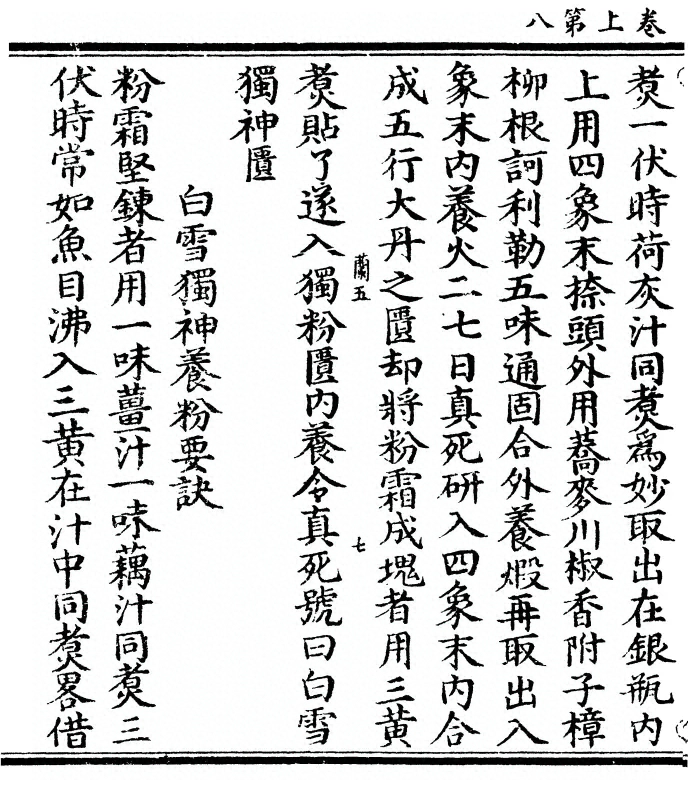 卷上第八
煑一伏時荷灰汁同煑爲妙取出在銀瓶内
上用四象末捺頭外用蕎麥川椒香附子樟
柳根訶利勒五味通固合外養煅再取出入
象末内養火二七日真死研入四象末内合
成五行大丹之匱却將粉霜成塊者用三黄
蘭五
七
煑貼了遂入獨粉匱内養令真死號曰白雪
獨神匱
白雪獨神養粉要訣
粉霜堅鍊者用一味薑汁一味藕汁同煑三
伏時常如魚目沸入三黄在汁中同煑畧借